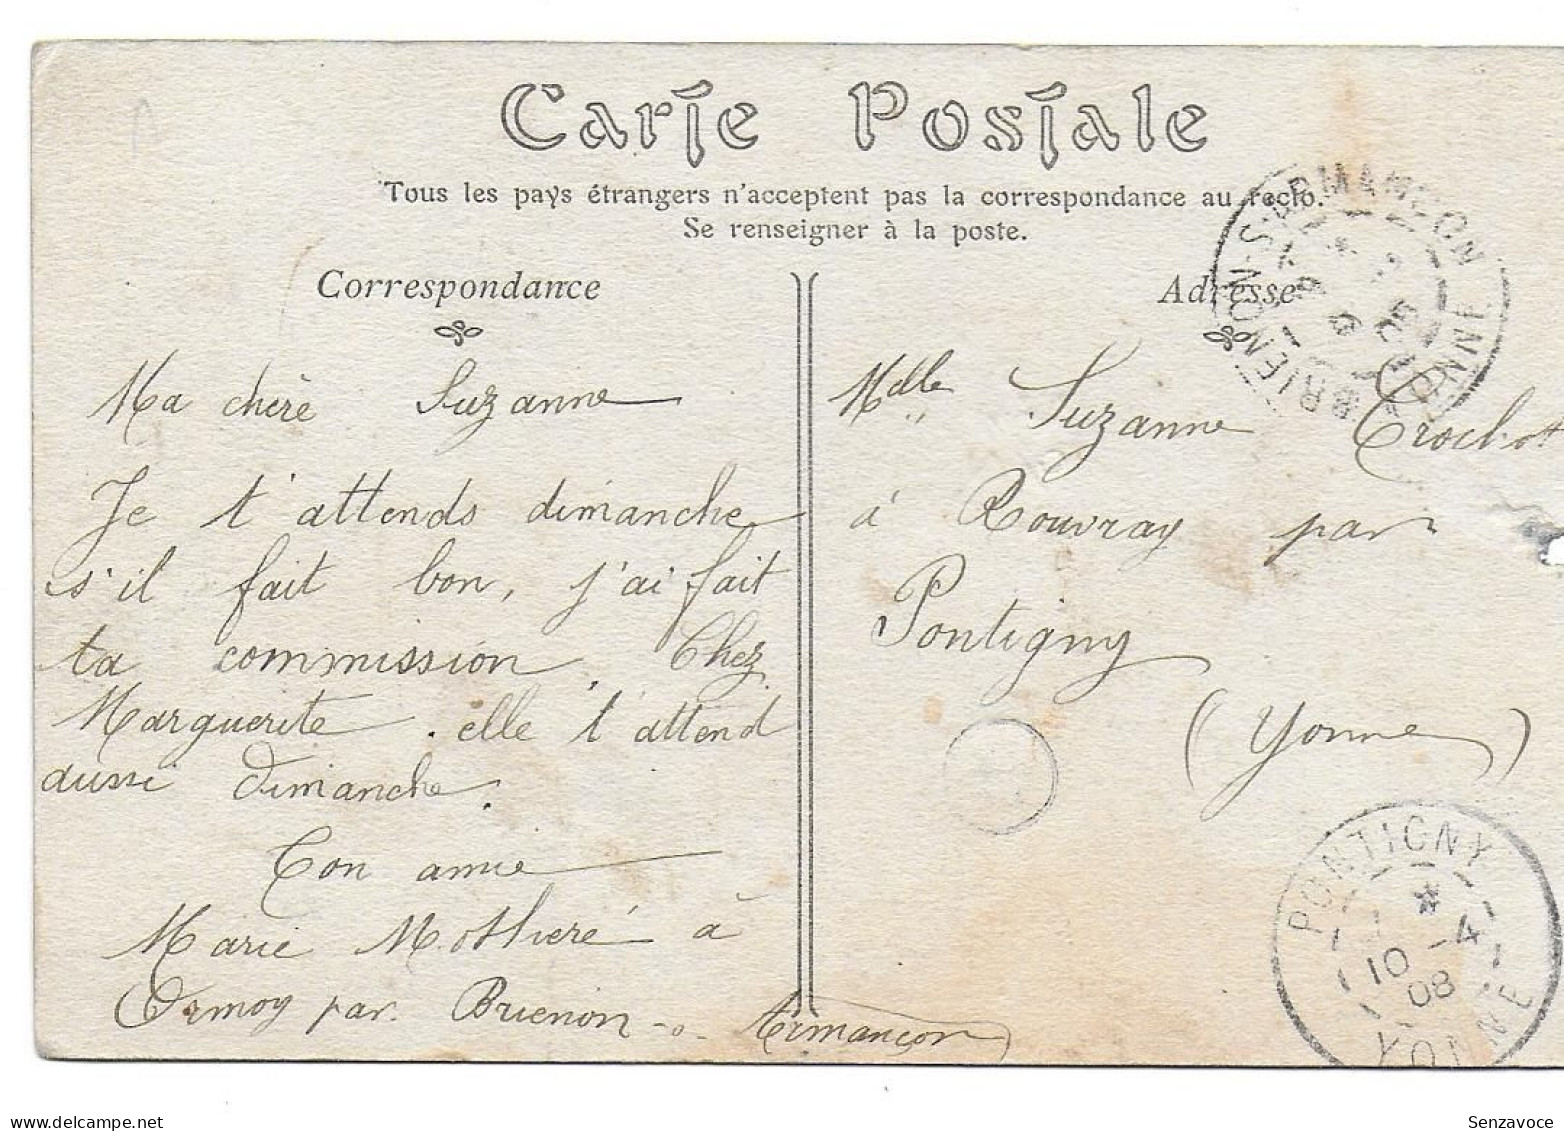 Carte Postale
Tous les pays étrangers n'acceptent pas la correspondance au recto.
Se renseigner à la poste.
Correspondance
Ma chère Suzanne
Je t'attends dimanche
s'il fait bon, j'ai fait
ta commission. Chez
Marguerite. elle t'attend
aussi Dimanche.
Ton amie
Marie Motheré à
Ormoy par Brienon-s-Armançon
Adresse
Melle Suzanne Crochot
à Rouvray par
Pontigny
(Yonne)
BRIENON-S-ARMANÇON
YONNE
PONTIGNY
10-4
08
YONNE
Senzavoce